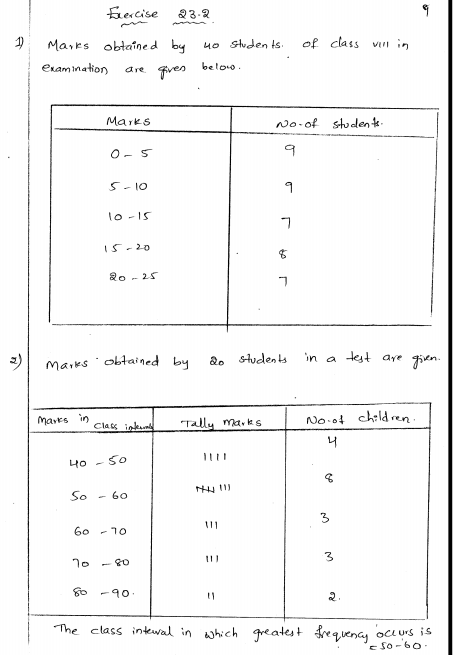 Exercise 23.2
9
1) Marks obtained by 40 students. of class VIII in
examination are given below.
Marks No. of students.
0 - 5 9
5 - 10 9
10 - 15 7
15 - 20 8
20 - 25 7
2) Marks obtained by 20 students in a test are given.
Marks in class interval Tally Marks No. of children.
40 - 50 |||| 4
50 - 60 𝍸 ||| 8
60 - 70 ||| 3
70 - 80 ||| 3
80 - 90. || 2.
The class interval in which greatest frequency occurs is
= 50 - 60.